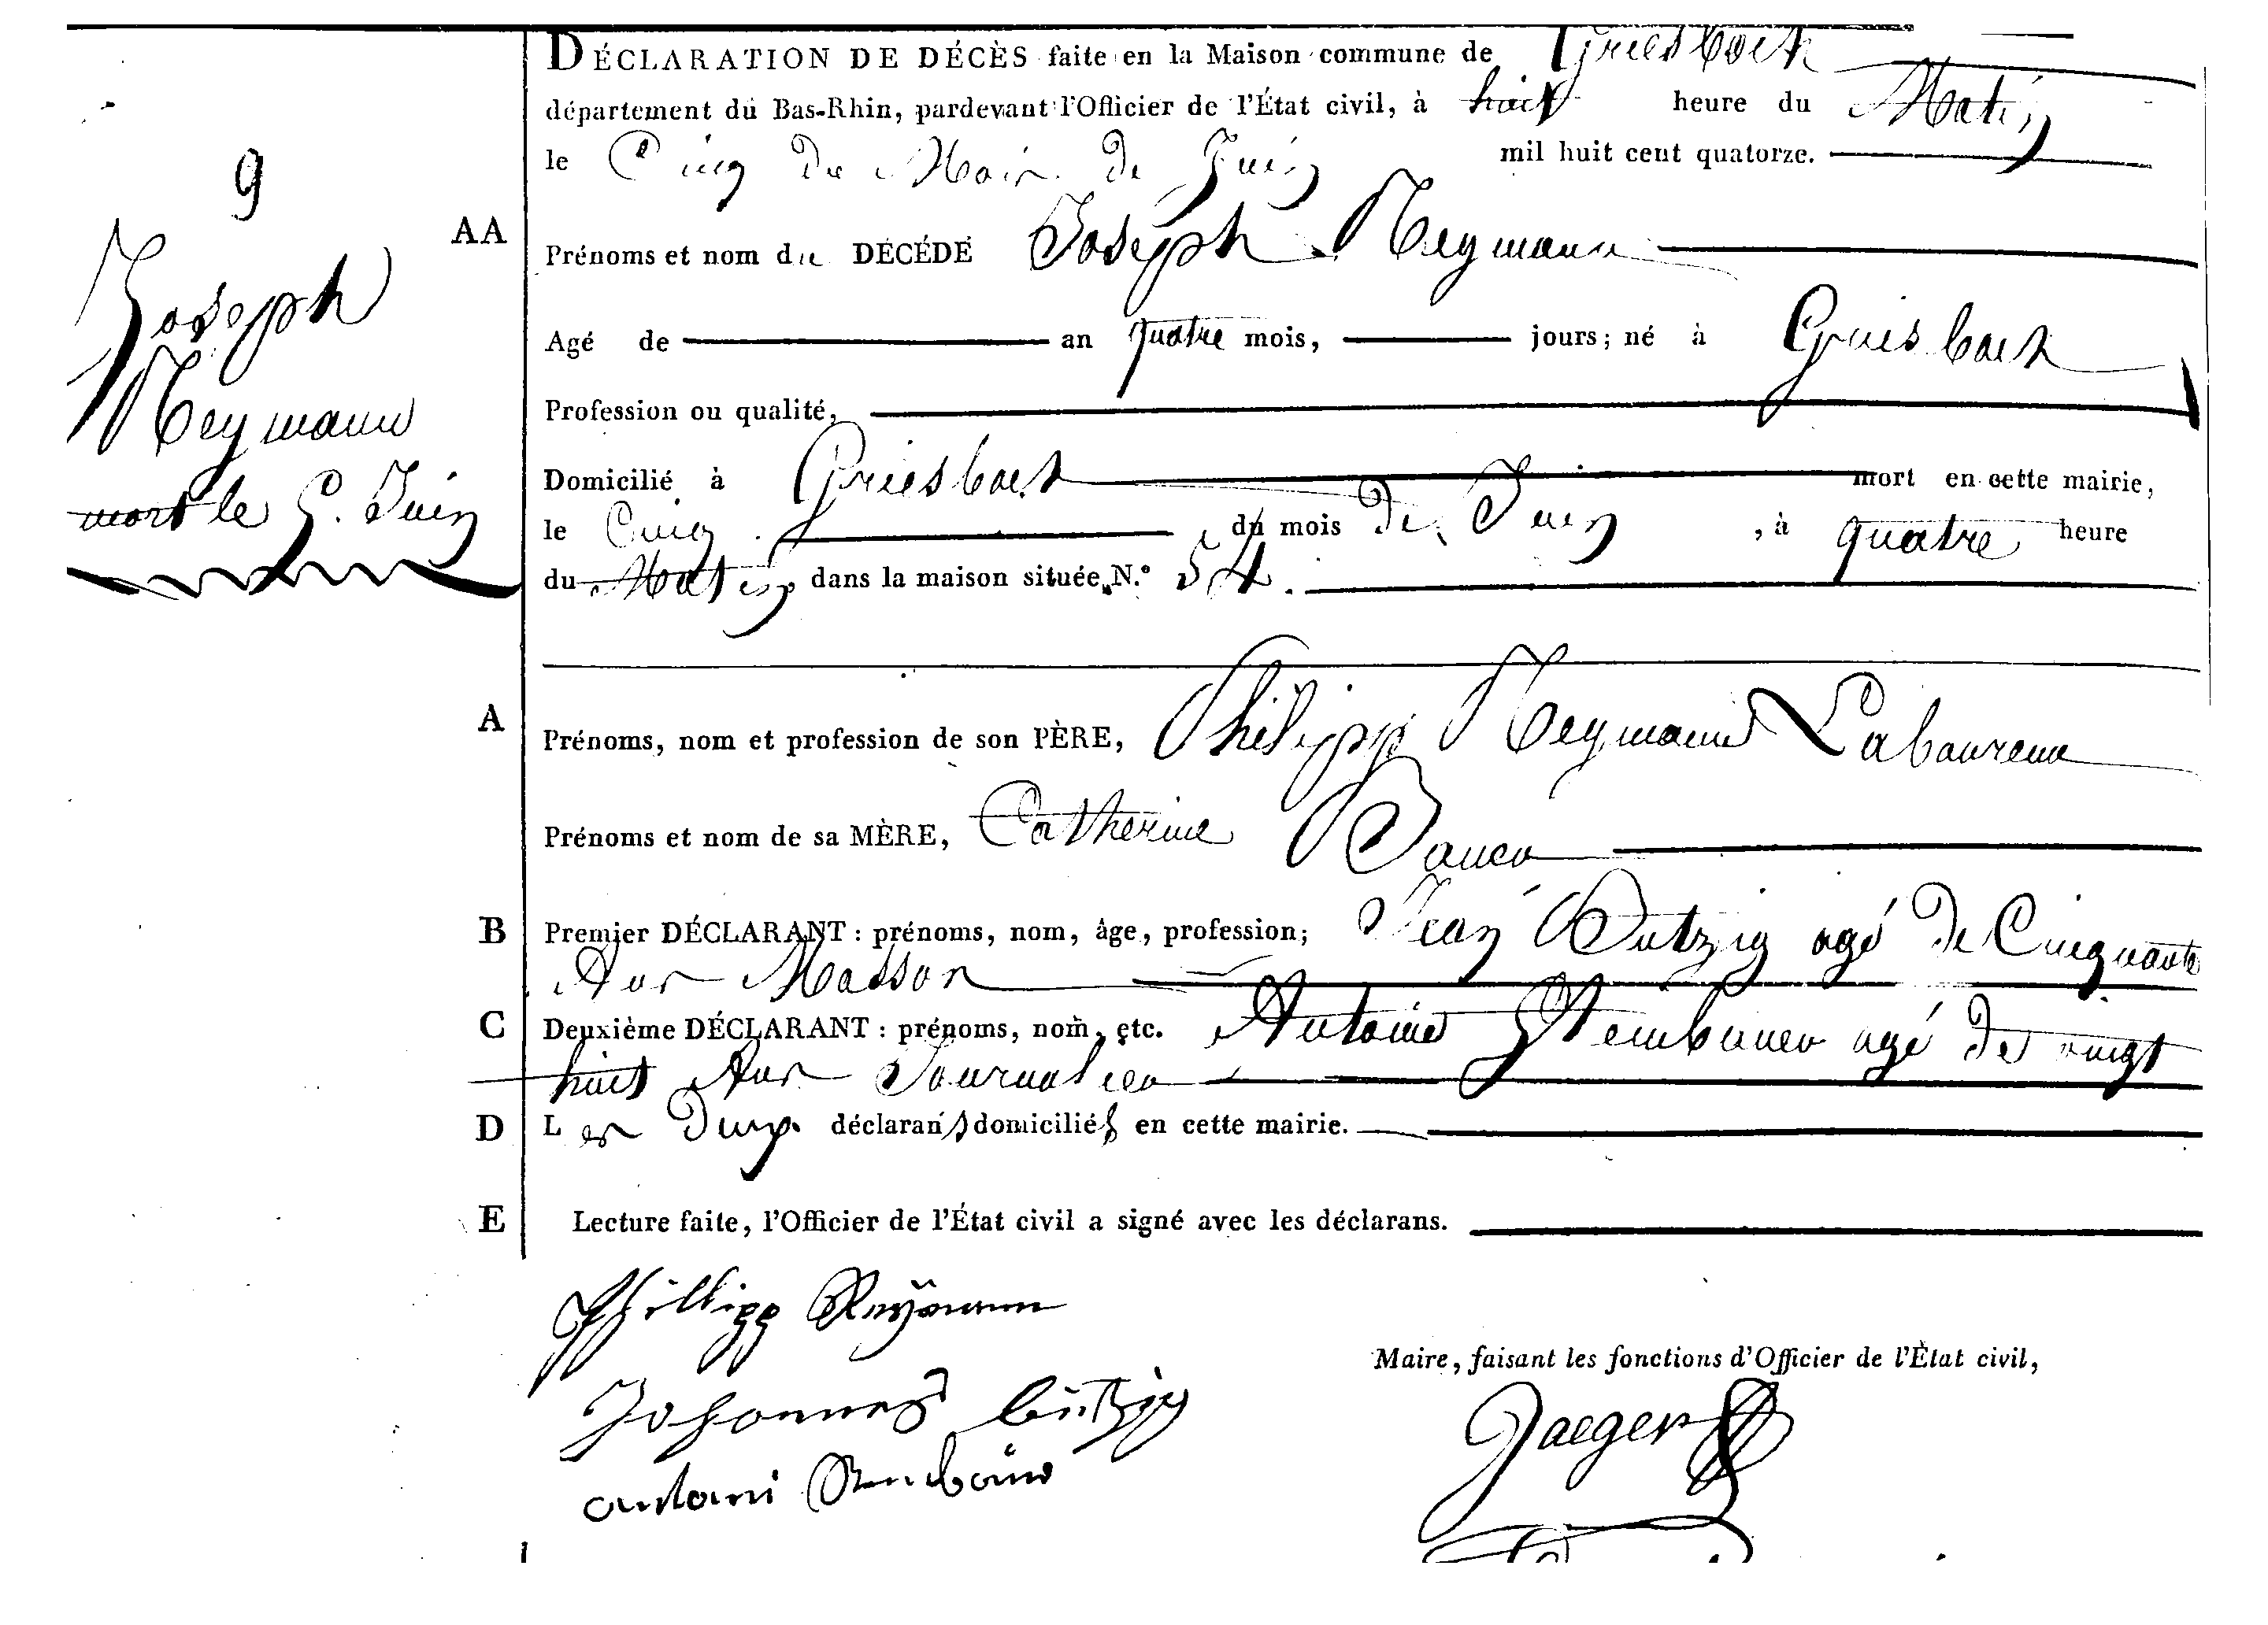 DÉCLARATION DE DÉCÈS faite en la Maison commune de Griesbach
département du Bas-Rhin, pardevant l'Officier de l'État civil, à huit heure du Matin
le Cinq du Mois de Juin mil huit cent quatorze.
9
AA
Prénoms et nom du DÉCÉDÉ Joseph Reymann
Joseph
Reymann
mort le 5. Juin
Agé de an quatre mois, jours; né à Griesbach
Profession ou qualité,
Domicilié à Griesbach mort en cette mairie,
le Cinq du mois de Juin, à quatre heure
du Matin dans la maison située N.° 54.
A
Prénoms, nom et profession de son PÈRE, Philipp Reymann Laboureur
Prénoms et nom de sa MÈRE, Catherine
B
Premier DÉCLARANT: prénoms, nom, âge, profession; Jean Butzig agé de Cinquante
Ans Masson
C
Deuxième DÉCLARANT: prénoms, nom, etc. Antoine agé de vingt
huit Ans Journalier
D
Les Deux déclarans domiciliés en cette mairie.
E
Lecture faite, l'Officier de l'État civil a signé avec les déclarans.
Phillipp Reÿmann
Maire, faisant les fonctions d'Officier de l'État civil,
Johannes bützig
Jaeger
antoni